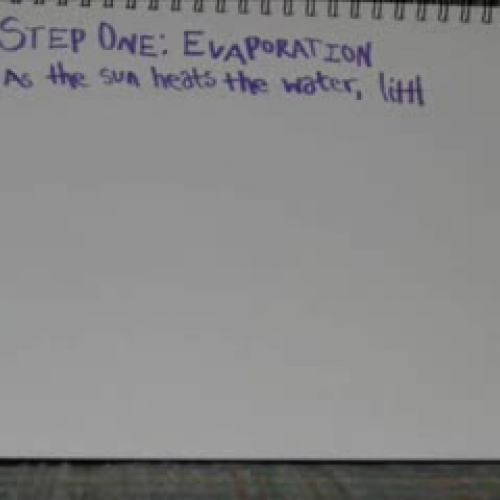 STEP ONE: EVAPORATION
As the sun heats the water, littl